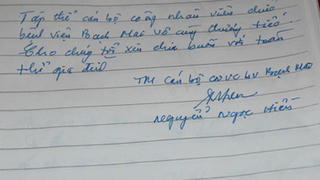 Tập thể cán bộ công nhân viên chức
bệnh viện Bạch Mai vô cùng thương tiếc
Cho chúng tôi xin chia buồn với toàn
thể gia đình
TM cán bộ CNVC BV Bạch Mai
Nguyễn Ngọc Hiền